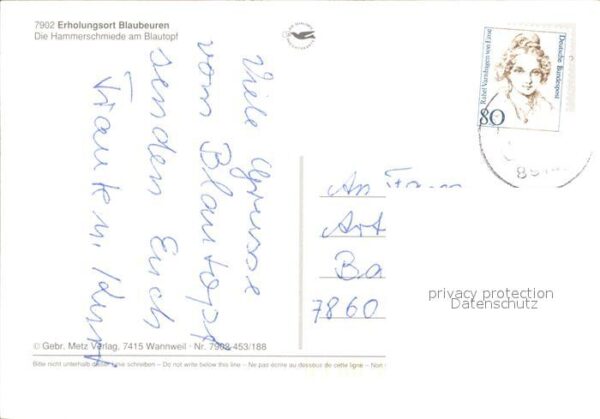 7902 Erholungsort Blaubeuren
Die Hammerschmiede am Blautopf
Viele Grüsse
vom Blautopf
senden Euch
u. Kurt
Deutsche Bundespost
Rahel Varnhagen von Ense
80
An
Art
Ba
7860
privacy protection
Datenschutz
© Gebr. Metz Verlag, 7415 Wannweil · Nr. 7902 453/188
Bitte nicht unterhalb dieser Linie schreiben – Do not write below this line – Ne pas écrire au dessous de cette ligne – Non